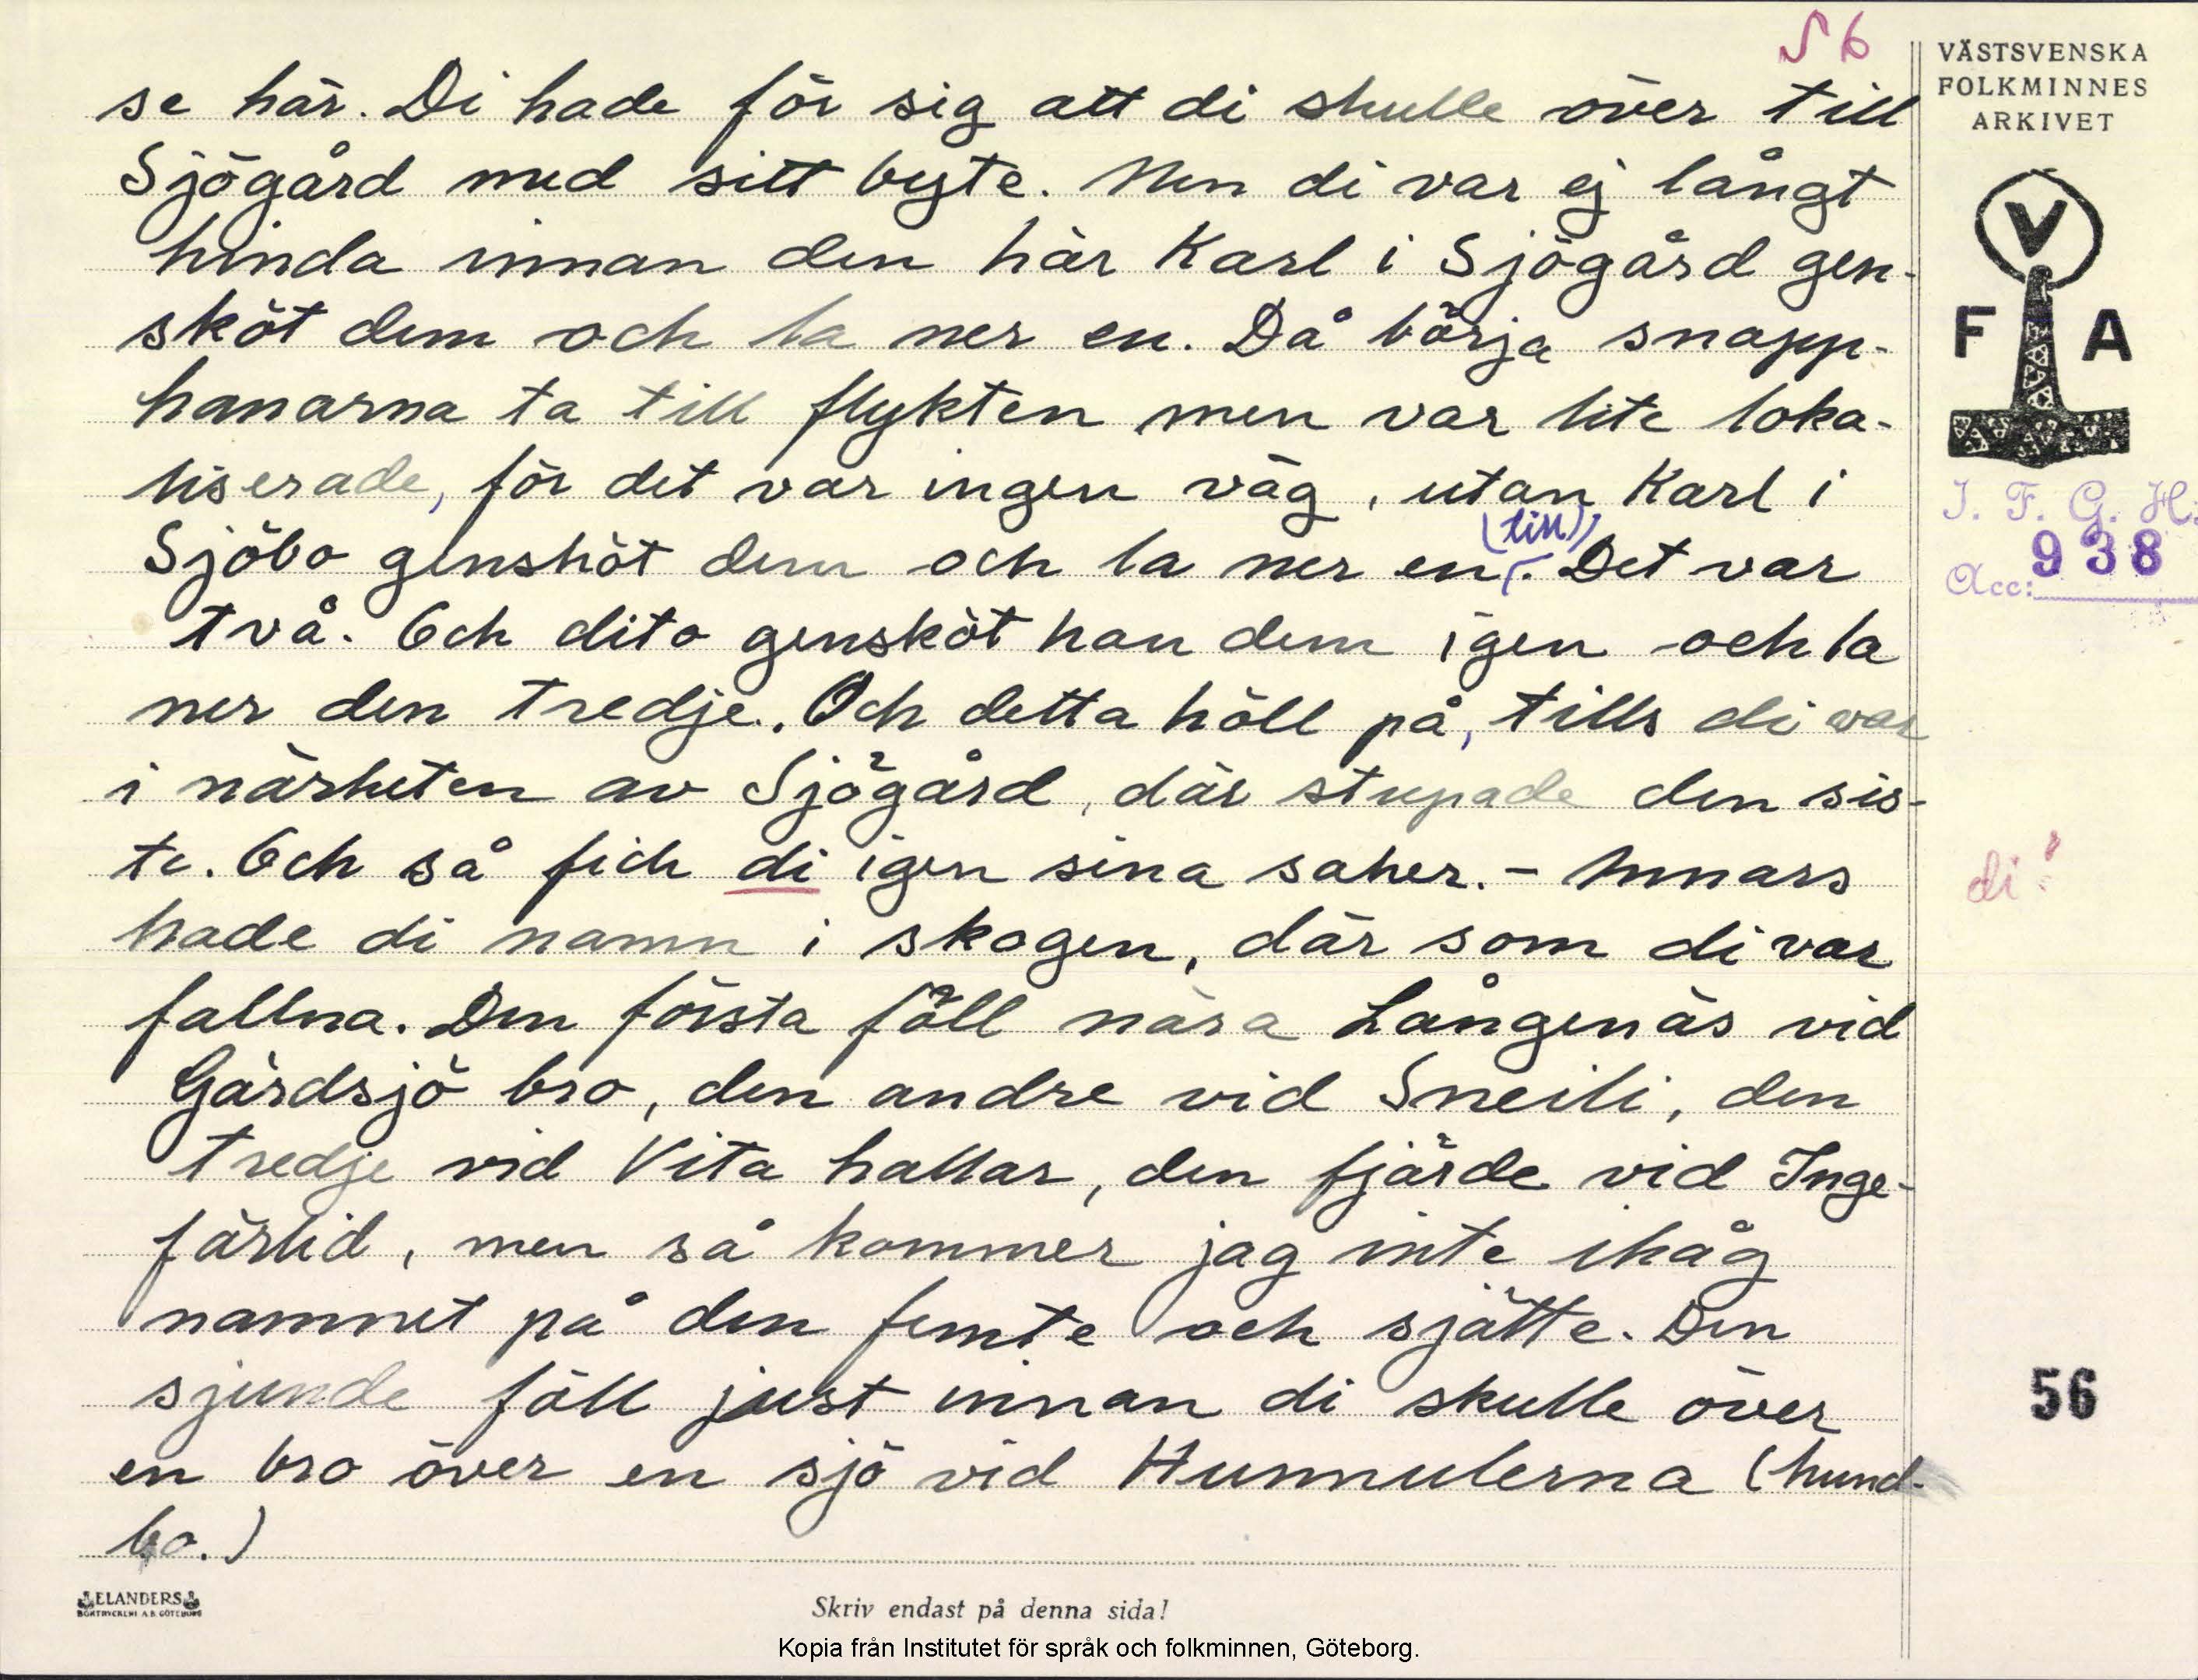 56
VÄSTSVENSKA
FOLKMINNES
ARKIVET
se här. Di hade för sig att di skulle över till
Sjögård med sitt byte. Men di var ej långt
hinda innan den här Karl i Sjögård gen-
sköt dem och la ner en. Då börja snapp-
hanarna ta till flykten men var lite loka-
liserade, för det var ingen väg, utan Karl i
Sjöbo genshöt dem och la ner en (till). Det var
två. Och dito gensköt han dem igen och la
ner den tredje. Och detta höll på, tills di var
i närheten av Sjögård, där stupade den sis-
te. Och så fick di igen sina saker. - Annars
hade di namn i skogen, där som di var
fallna. Den första föll nära Långenäs vid
Gärdsjö bro, den andre vid Sneili, den
tredje vid Vita hallar, den fjärde vid Inge-
färlid, men så kommer jag inte ihåg
namnet på den femte och sjätte. Den
sjunde föll just innan di skulle över
en bro över en sjö vid Hunnulerna (hund-
bo.)
V
F A
I. F. G. H.
Acc: 938
di!
56
ELANDERS
BOKTRYCKERI A.B. GÖTEBORG
Skriv endast på denna sida!
Kopia från Institutet för språk och folkminnen, Göteborg.